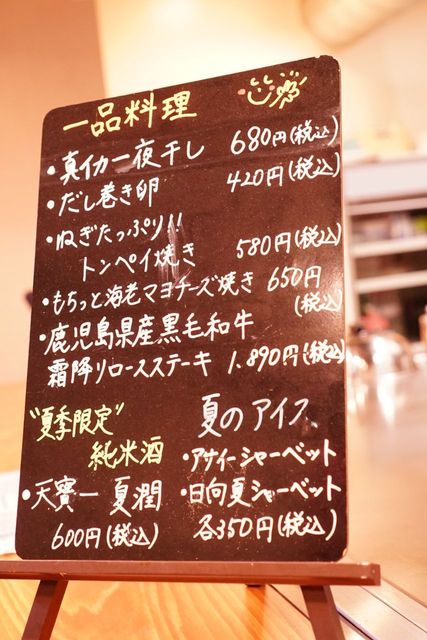 一品料理
・真イカ一夜干し 680円(税込)
・だし巻き卵 420円(税込)
・ねぎたっぷり!!
トンペイ焼き 580円(税込)
・もちっと海老マヨチーズ焼き 650円
(税込)
・鹿児島県産黒毛和牛
霜降リロースステーキ 1,890円(税込)
"夏季限定"
純米酒
・天寶一 夏潤
600円(税込)
夏のアイス
・アサイーシャーベット
・日向夏シャーベット
各350円(税込)